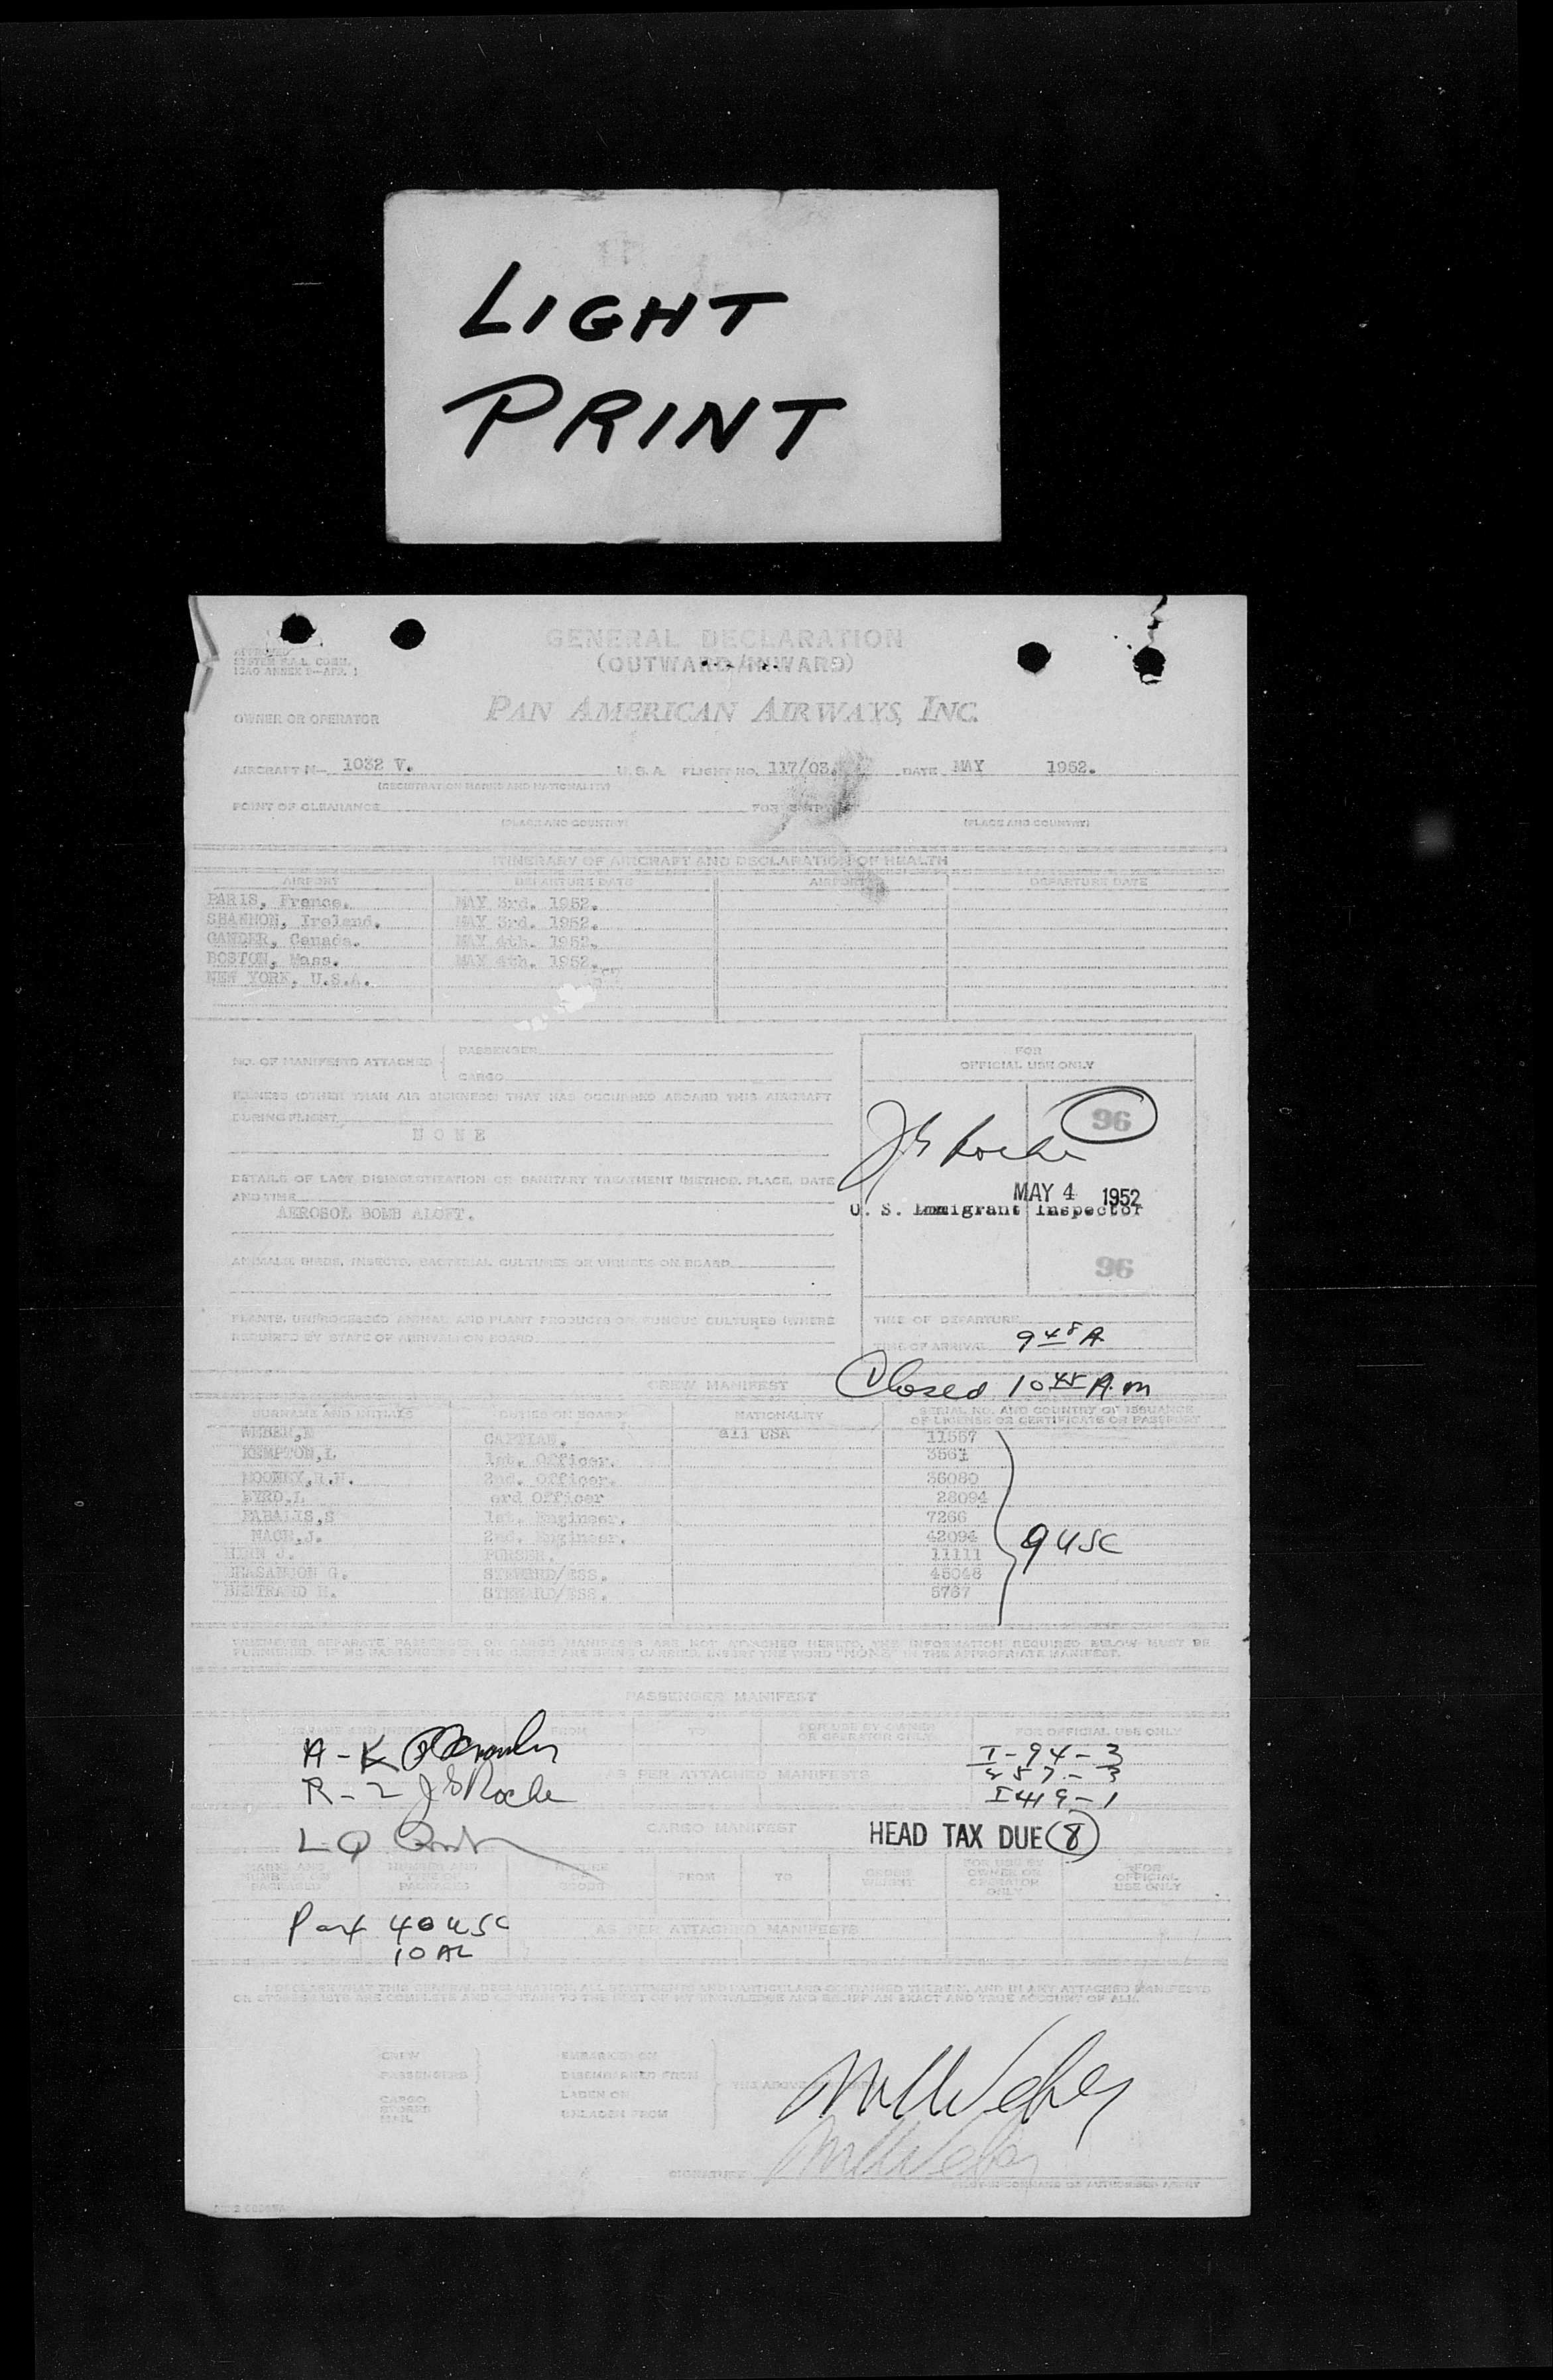 LIGHT
PRINT
GENERAL DECLARATION
(OUTWARD/INWARD)
APPROVED
SYSTEM P.A.L. COMM.
ICAO ANNEX 9—APP. 1
OWNER OR OPERATOR
PAN AMERICAN AIRWAYS, INC.
AIRCRAFT N— 1032 V. U. S. A. FLIGHT NO. 117/03. DATE MAY 1952.
(REGISTRATION MARKS AND NATIONALITY)
POINT OF CLEARANCE FOR ENTRY AT
(PLACE AND COUNTRY) (PLACE AND COUNTRY)
ITINERARY OF AIRCRAFT AND DECLARATION OF HEALTH
AIRPORT DEPARTURE DATE AIRPORT DEPARTURE DATE
PARIS, France. MAY 3rd. 1952.
SHANNON, Ireland. MAY 3rd. 1952.
GANDER, Canada. MAY 4th. 1952.
BOSTON, Mass. MAY 4th. 1952.
NEW YORK, U.S.A.
NO. OF MANIFESTS ATTACHED
PASSENGER
CARGO
FOR
OFFICIAL USE ONLY
ILLNESS (OTHER THAN AIR SICKNESS) THAT HAS OCCURRED ABOARD THIS AIRCRAFT
DURING FLIGHT
NONE
96
J S Roche
DETAILS OF LAST DISINSECTIZATION OR SANITARY TREATMENT (METHOD, PLACE, DATE
AND TIME
AEROSOL BOMB ALOFT.
MAY 4 1952
U. S. Immigrant Inspector
ANIMALS, BIRDS, INSECTS, BACTERIAL CULTURES OR VIRUSES ON BOARD
96
PLANTS, UNPROCESSED ANIMAL AND PLANT PRODUCTS OR FUNGUS CULTURES (WHERE
REQUIRED BY STATE OF ARRIVAL) ON BOARD
TIME OF DEPARTURE
TIME OF ARRIVAL 9 48 A
Closed 10 45 A.m
CREW MANIFEST
SURNAME AND INITIALS DUTIES ON BOARD NATIONALITY SERIAL NO. AND COUNTRY OF ISSUANCE
OF LICENSE OR CERTIFICATE OR PASSPORT
WEBER, CAPTIAN. all USA 11557
KEMPTON,L 1st. Officer. 3561
MOONEY,R.H. 2nd. Officer. 36080
BYRD,L 3rd Officer 28094
1st. Engineer. 7266
NASH,J. 2nd. Engineer. 42094
J. PURSER. 11111
G. STEWARD/ESS. 45048
BERTRAND H. STEWARD/ESS. 5767
9 USC
WHENEVER SEPARATE PASSENGER OR CARGO MANIFESTS ARE NOT ATTACHED HERETO, THE INFORMATION REQUIRED BELOW MUST BE
FURNISHED. IF NO PASSENGERS OR NO CARGO ARE BEING CARRIED, INSERT THE WORD "NONE" IN THE APPROPRIATE MANIFEST.
PASSENGER MANIFEST
SURNAME AND INITIALS FROM TO FOR USE BY OWNER
OR OPERATOR ONLY FOR OFFICIAL USE ONLY
A - K
I-94-3
AS PER ATTACHED MANIFESTS
257-3
R - Z J S Roche
I 419-1
L-Q
CARGO MANIFEST
HEAD TAX DUE 8
MARKS AND
NUMBERS ON
PACKAGES NUMBER AND
TYPE OF
PACKAGES NATURE
OF
GOODS FROM TO GROSS
WEIGHT FOR USE BY
OWNER OR
OPERATOR
ONLY FOR
OFFICIAL
USE ONLY
Pax 40 USC
AS PER ATTACHED MANIFESTS
10 AL
I DECLARE THAT THIS GENERAL DECLARATION, ALL STATEMENTS AND PARTICULARS CONTAINED THEREIN, AND IN ANY ATTACHED MANIFESTS
OR STORES LISTS ARE COMPLETE AND CONTAIN TO THE BEST OF MY KNOWLEDGE AND BELIEF AN EXACT AND TRUE ACCOUNT OF ALL.
CREW
PASSENGERS
CARGO
STORES
MAIL
EMBARKED ON
DISEMBARKED FROM
LADEN ON
UNLADEN FROM
THE ABOVE AIRCRAFT
Weber
SIGNATURE
PILOT-IN-COMMAND OR AUTHORISED AGENT